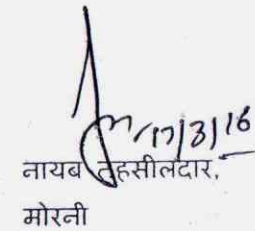 17/3/16
नायब तहसीलदार,
मोरनी